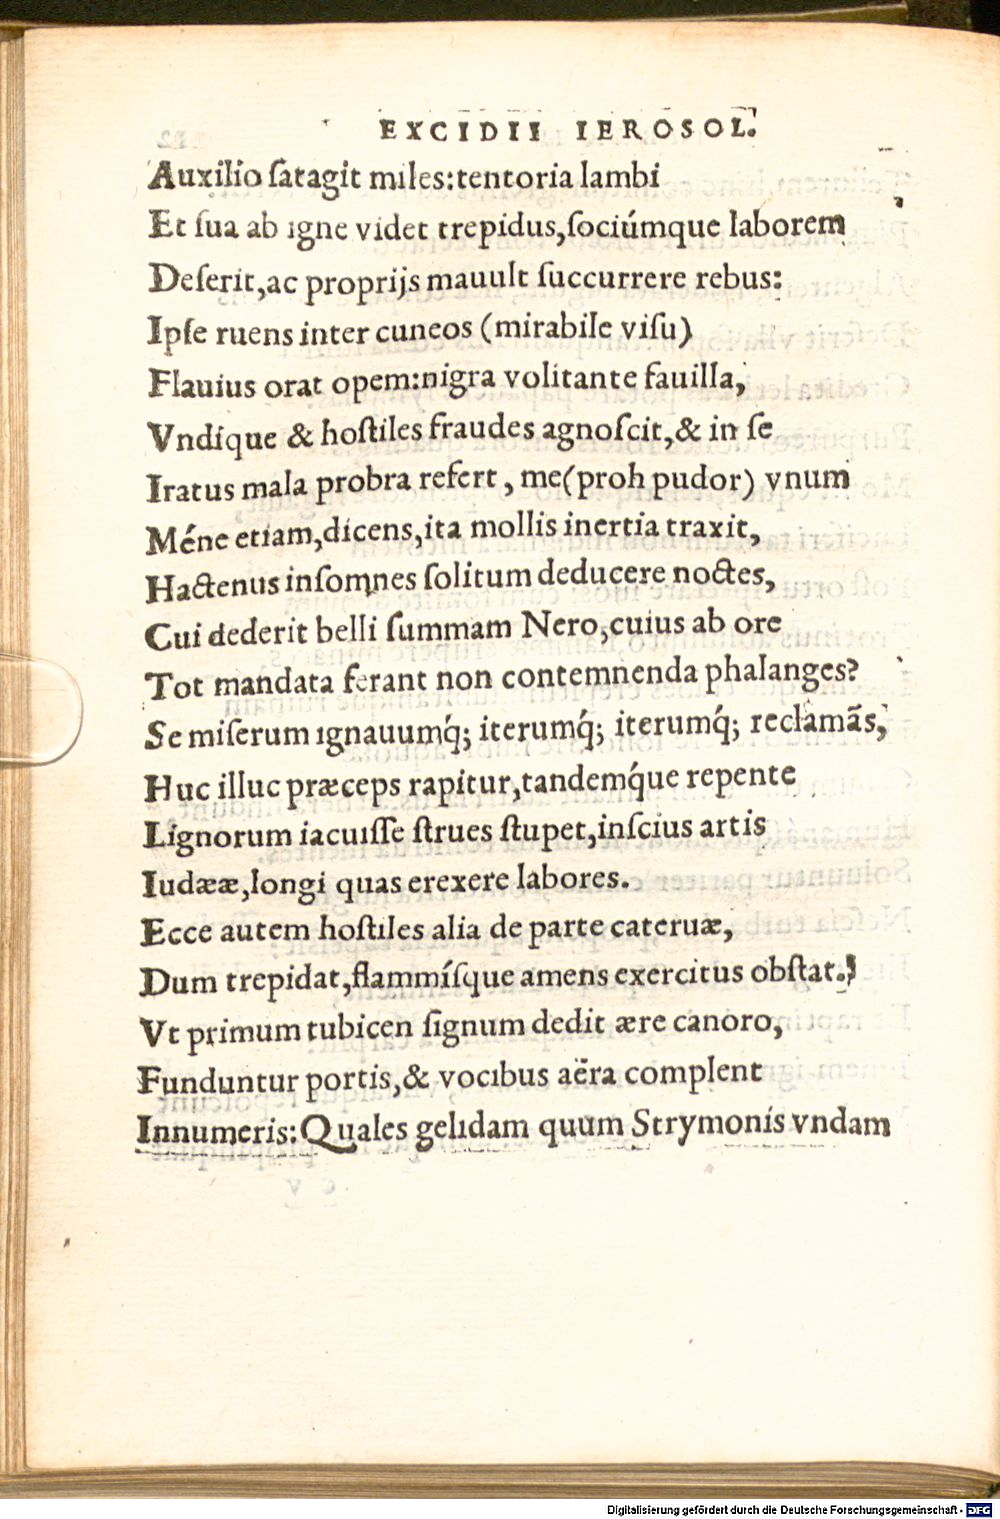 EXCIDII IEROSOL.
Auxilio ſatagit miles:tentoria lambi
Et ſua ab igne videt trepidus,ſociúmque laborem
Deſerit,ac proprijs mauult ſuccurrere rebus:
Ipſe ruens inter cuneos (mirabile viſu)
Flauius orat opem:nigra volitante fauilla,
Vndíque & hoſtiles fraudes agnoſcit,& in ſe
Iratus mala probra refert, me(proh pudor) vnum
Méne etiam,dicens,ita mollis inertia traxit,
Hactenus inſomnes ſolitum deducere noctes,
Cui dederit belli ſummam Nero,cuius ab ore
Tot mandata ferant non contemnenda phalanges?
Se miſerum ignauumq́; iterumq́; iterumq́; reclamãs,
Huc illuc præceps rapitur,tandemq́ue repente
Lignorum iacuiſſe ſtrues ſtupet,inſcius artis
Iudææ,longi quas erexere labores.
Ecce autem hoſtiles alia de parte cateruæ,
Dum trepidat,flammíſque amens exercitus obſtat.
Vt primum tubicen ſignum dedit ære canoro,
Funduntur portis,& vocibus aëra complent
Innumeris:Quales gelidam quum Strymonis vndam
Digitalisierung gefördert durch die Deutsche Forschungsgemeinschaft - DFG